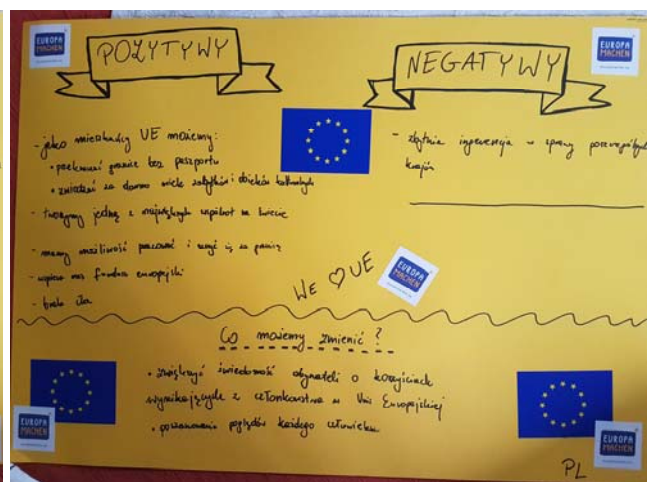 EUROPA MACHEN
POZYTYWY
- jako mieszkańcy UE możemy:
• przekraczać granice bez paszportu
• zwiedzać za darmo wiele zabytków i obiektów kulturalnych
- tworzymy jedną z największych wspólnot na świecie
- mamy możliwość pracować i uczyć się za granicą
- wspiera nas fundusz europejski
- brak
EUROPA MACHEN
NEGATYWY
- zbytnia ingerencja w sprawy poszczególnych
krajów
We ♡ UE
EUROPA MACHEN
Co możemy zmienić?
• zwiększyć świadomość obywateli o korzyściach
wynikających z członkostwa w Unii Europejskiej
• poszanowanie poglądów każdego człowieka
EUROPA MACHEN
EUROPA MACHEN
PL